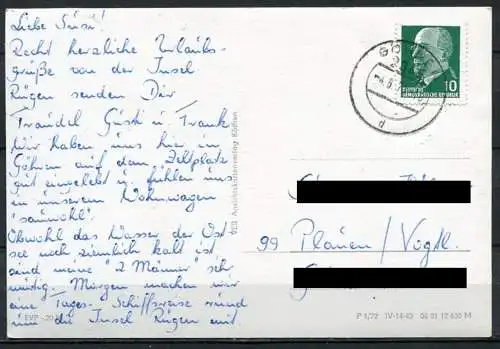 Liebe Susi!
Recht herzliche Urlaubs-
grüße von der Insel
Rügen senden Dir
Traudel Gusti u. Frank
Wir haben uns hier in
Göhren auf dem Zeltplatz
gut eingelebt u. fühlen uns
in unserem Wohnwagen
"sauwohl".
Obwohl das Wasser der Ost-
see noch ziemlich kalt ist
sind meine "2 Männer" sehr
mutig. Morgen machen wir
eine Tages-Schiffsreise rund
um die Insel Rügen mit.
EVP -,20
VEB Ansichtskartenverlag Köthen
10
DEUTSCHE
DEMOKRATISCHE REPUBLIK
99 Plauen/Vogtl.
P 1/72 IV-14-43 04 01 12 030 M